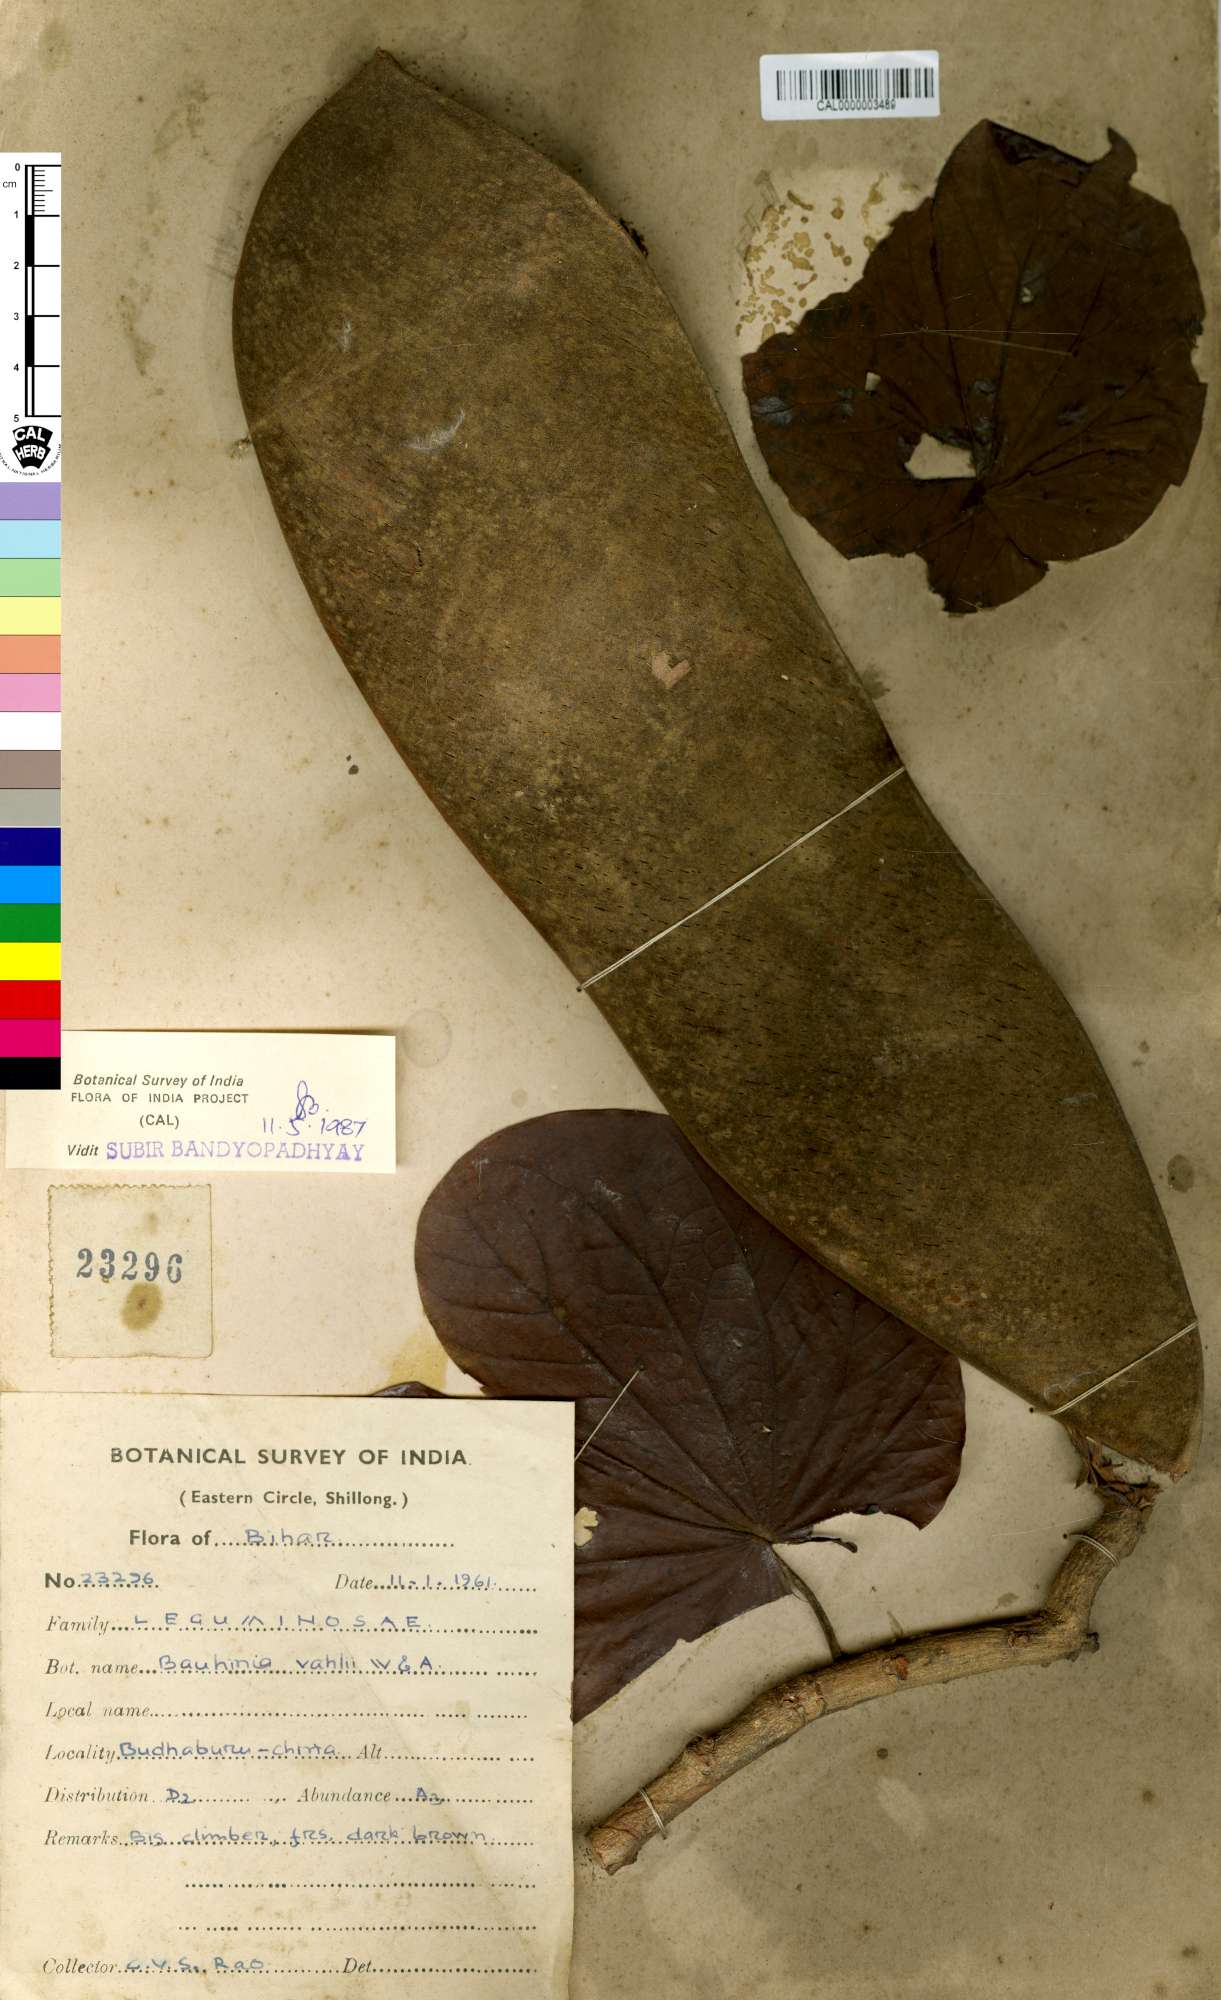 CAL0000003489
0
cm
1
2
3
4
5
CAL
HERB
Botanical Survey of India
FLORA OF INDIA PROJECT
(CAL)
11.5.1987
Vidit SUBIR BANDYOPADHYAY
23296
BOTANICAL SURVEY OF INDIA.
(Eastern Circle, Shillong.)
Flora of Bihar
No 23296 Date 11-1-1961
Family LEGUMINOSAE
Bot. name Bauhinia vahlii W & A.
Local name
Locality Budhaburu-chiria Alt
Distribution D2 Abundance A3
Remarks Big climber, frs. dark brown
Collector G.V.S. Rao Det